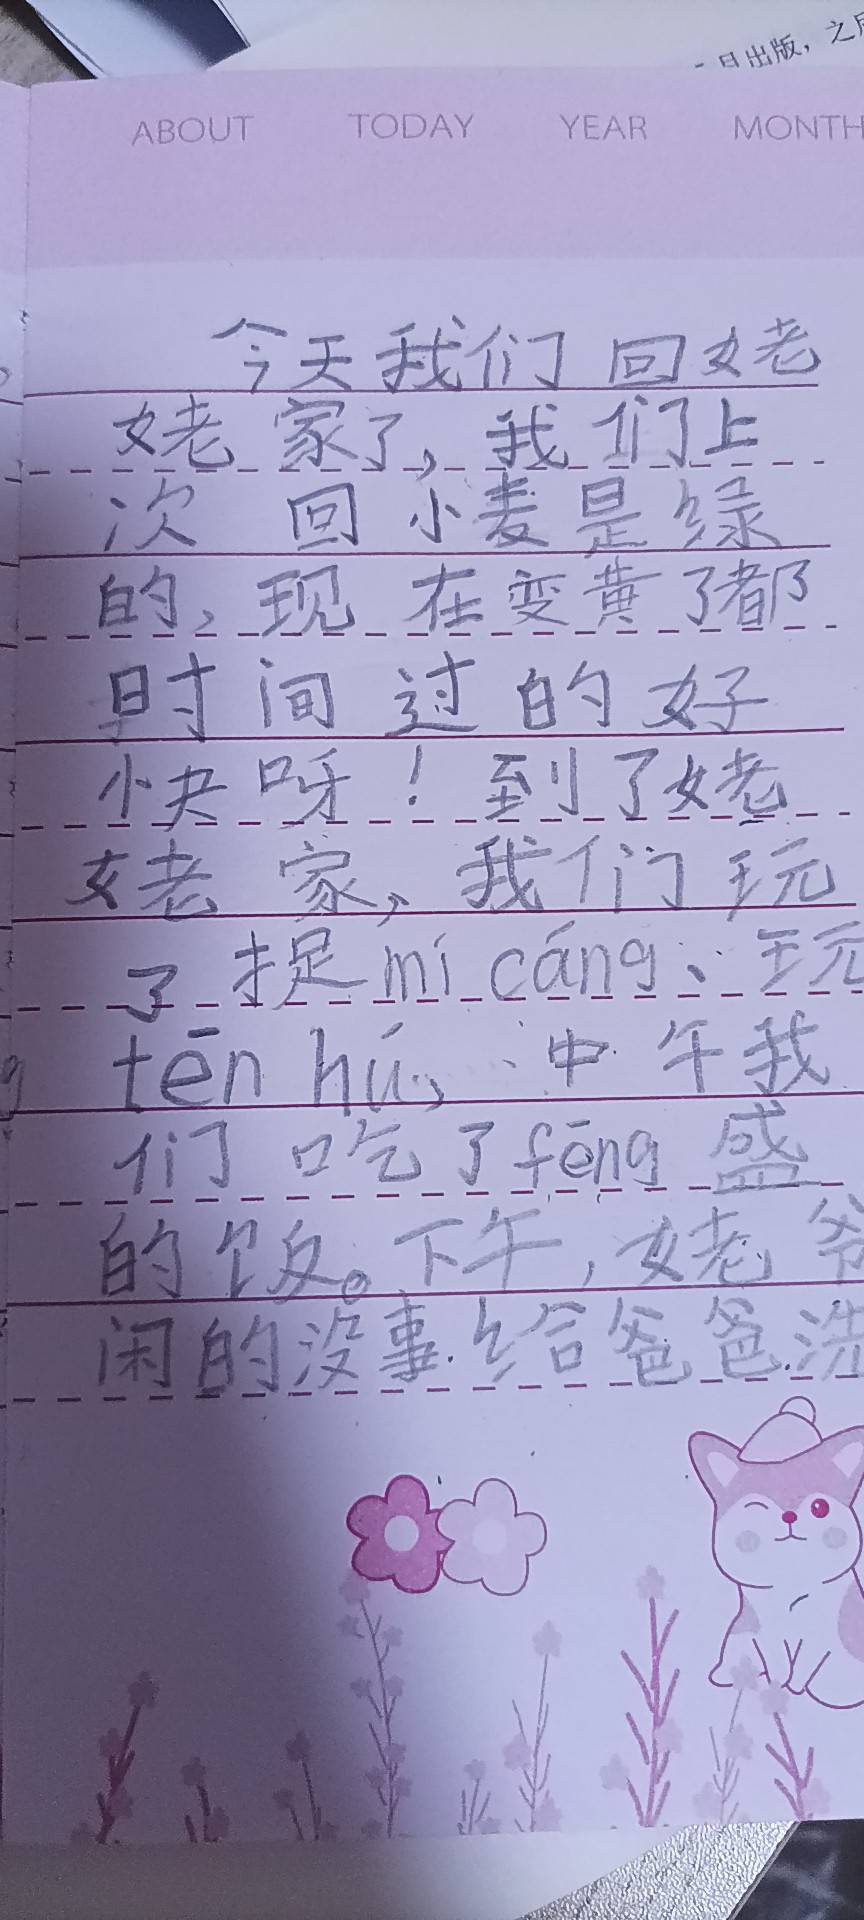 日出版，之
ABOUT TODAY YEAR MONTH
今天我们回姥
姥家了，我们上
次回小麦是绿
的，现在变黄了都
时间过的好
快呀！到了姥
姥家，我们玩
了捉mí cáng、玩
tēn hú，中午我
们吃了fēng盛
的饭。下午，姥爷
闲的没事.给爸爸.洗